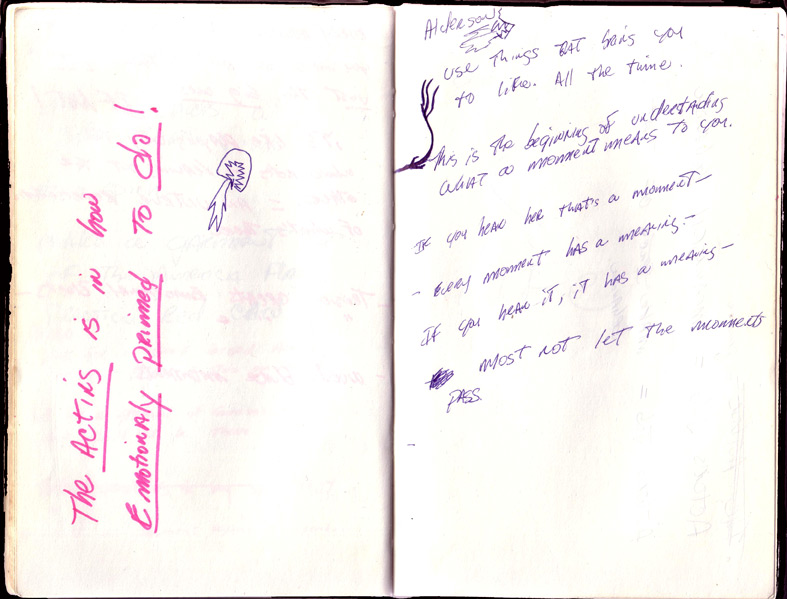 The ACTING is in how
EmotionAly primed to do!
Alderson
use things that bring you
to life. All the time.
This is the beginning of understanding
what a moment means to you.
If you hear her that's a moment—
- Every moment has a meaning.-
If you hear it, it has a meaning—
most not let the moments
pass.